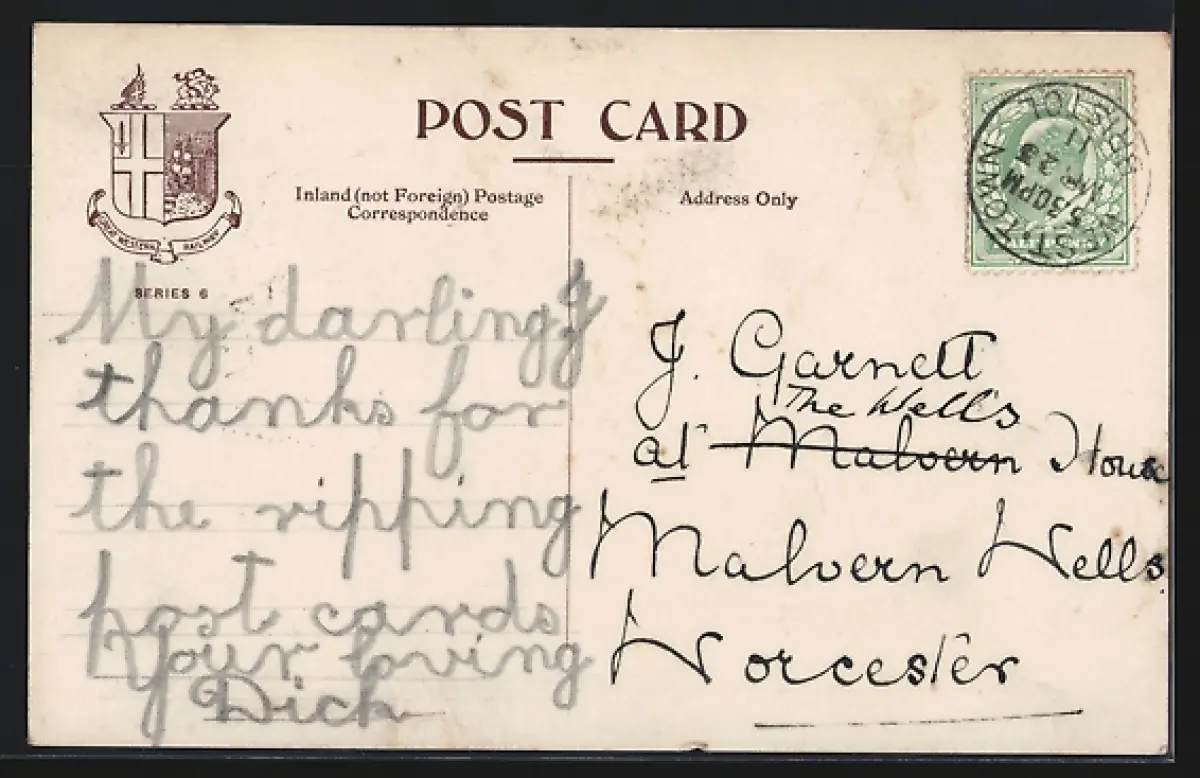 POST CARD
GREAT WESTERN RAILWAY
SERIES 6
Inland (not Foreign) Postage
Correspondence
Address Only
BRISTOL
11
MAR 23
5.30PM
WEST TOWN
HALFPENNY
My darling J
thanks for
the ripping
post cards
Your loving
Dick
J. Garnett
The Wells
at Malvern House
Malvern Wells
Worcester